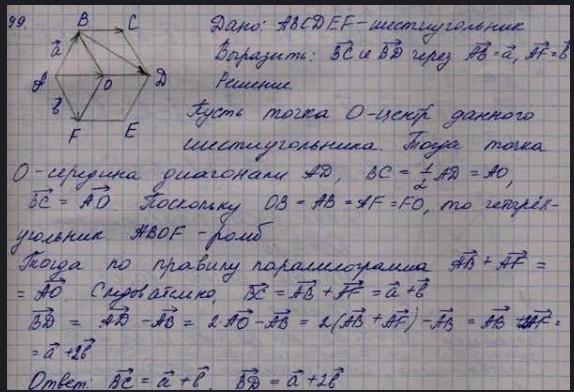 99.
B C
A O D
F E
a⃗
b⃗
Дано: ABCDEF-шестиугольник
Выразить: B͞C и B͞D через A͞B=a⃗, A͞F=b⃗
Решение
Пусть точка O-центр данного
шестиугольника. Тогда точка
O-середина диагонали AD, BC = 1/2 AD = AO,
B͞C = A͞O. Поскольку OB = AB = AF = FO, то четырёх-
угольник ABOF - ромб
Тогда по правилу паралелограмма A͞B + A͞F =
= A͞O. Следоватемно, B͞C = A͞B + A͞F = a⃗ + b⃗
B͞D = A͞D - A͞B = 2·A͞O - A͞B = 2(A͞B + A͞F) - A͞B = A͞B + 2A͞F =
= a⃗ + 2b⃗
Ответ. B͞C = a⃗ + b⃗, B͞D = a⃗ + 2b⃗